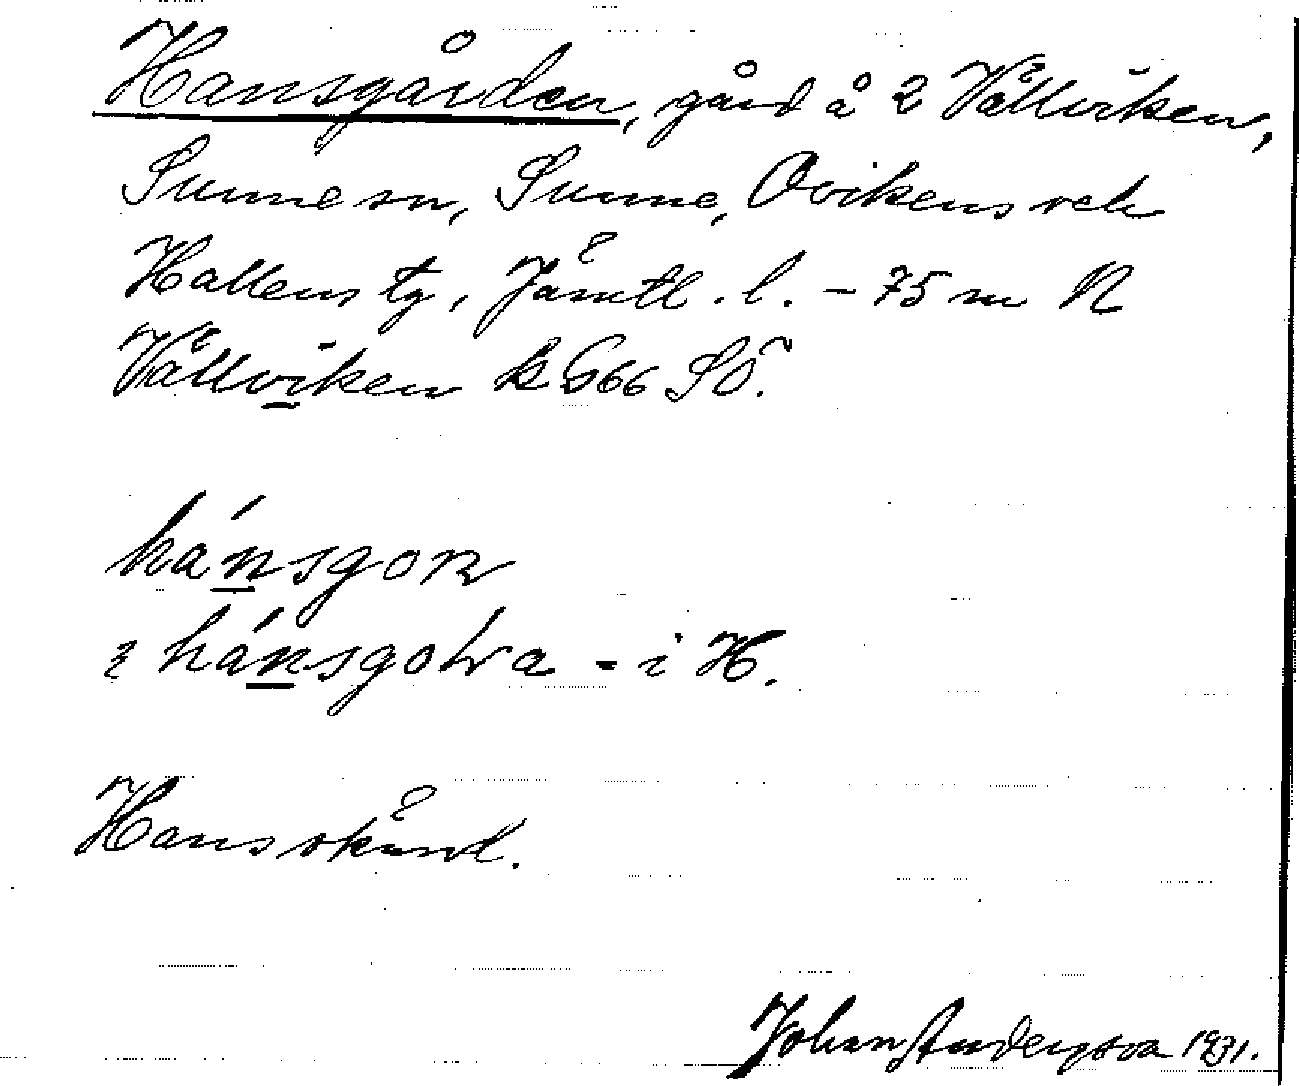 Hansgården, gård å 2 Vällviken,
Sunne sn, Sunne, Ovikens och
Hallens tg, Jämtl. l. - 75 m N
Vällviken k 666 SÖ.
hánsgoṉ
hánsgolva - i H.
Hans okänd.
Johan Anderson 1931.